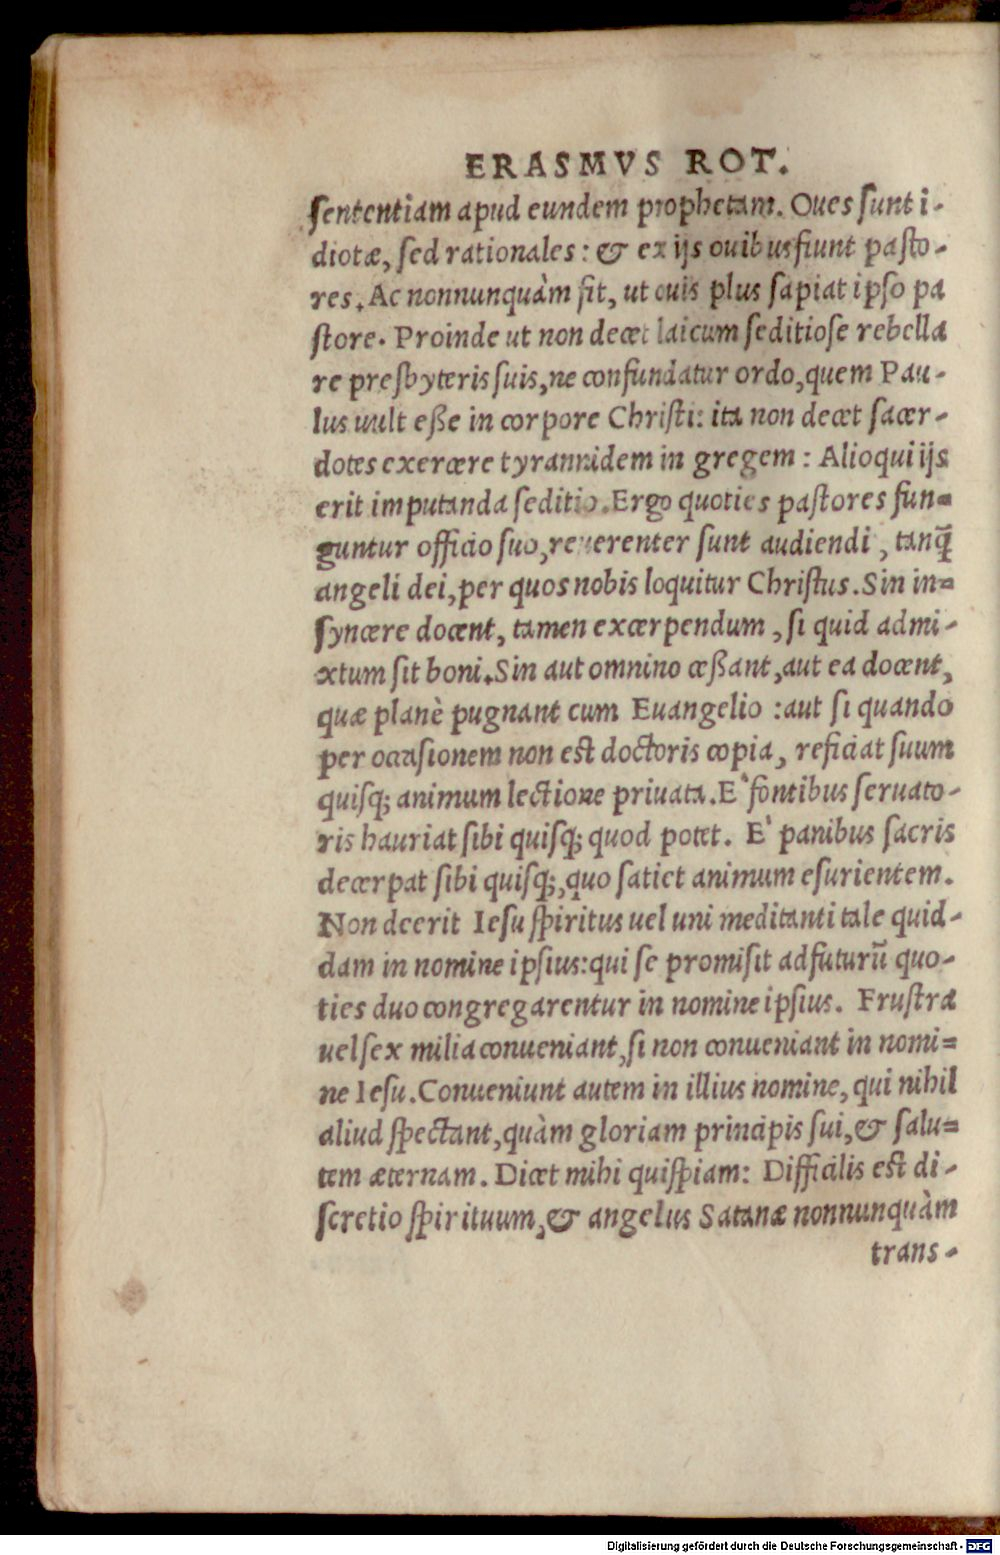 ERASMVS ROT.
ſententiam apud eundem prophetam. Oues ſunt i-
diotæ, ſed rationales: & ex ijs ouibus fiunt paſto-
res. Ac nonnunquàm fit, ut ouis plus ſapiat ipſo pa
ſtore. Proinde ut non decet laicum ſeditioſe rebella
re preſbyteris ſuis, ne confundatur ordo, quem Pau-
lus uult eße in corpore Chriſti: ita non decet ſacer-
dotes exercere tyrannidem in gregem: Alioqui ijs
erit imputanda ſeditio. Ergo quoties paſtores fun-
guntur officio ſuo, reuerenter ſunt audiendi, tanq̃
angeli dei, per quos nobis loquitur Chriſtus. Sin in-
ſyncere docent, tamen excerpendum, ſi quid admi-
xtum ſit boni. Sin aut omnino ceßant, aut ea docent,
quæ planè pugnant cum Euangelio: aut ſi quando
per occaſionem non eſt doctoris copia, reficiat ſuum
quiſq; animum lectione priuata. E` fontibus ſeruato-
ris hauriat ſibi quiſq; quod potet. E` panibus ſacris
decerpat ſibi quiſq;, quo ſatiet animum eſurientem.
Non deerit Ieſu ſpiritus uel uni meditanti tale quid-
dam in nomine ipſius: qui ſe promiſit adfuturũ quo-
ties duo congregarentur in nomine ipſius. Fruſtra
uel ſex milia conueniant, ſi non conueniant in nomi-
ne Ieſu. Conueniunt autem in illius nomine, qui nihil
aliud ſpectant, quàm gloriam principis ſui, & ſalu-
tem æternam. Dicet mihi quiſpiam: Difficilis eſt di-
ſcretio ſpirituum, & angelus Satanæ nonnunquàm
trans-
Digitalisierung gefördert durch die Deutsche Forschungsgemeinschaft - DFG